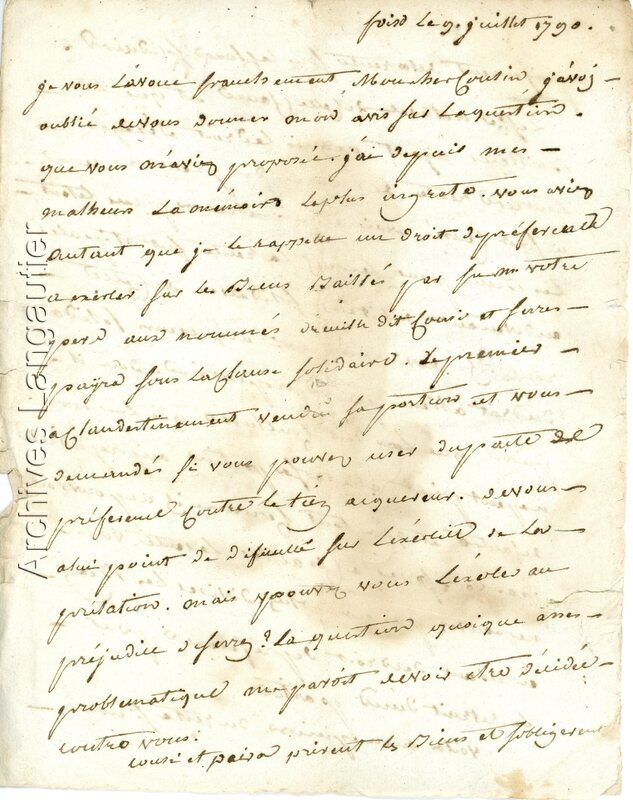 foix le 9. juillet 1790.
je vous l'avoue franchement, Mon cher Cousin, j'avoi
oublié de vous donner mon avis sur la question
que vous m'aviez proposée. j'ai depuis mes
malheurs la mémoire la plus ingrate. vous aviez
autant que je le rappelle un droit de préférence
a exercer sur les Biens Baillés par feu mr votre
pere aux nommés dit Cousi et serres
payra sous la Clause solidaire. le premier
a Clandestinement vendu sa portion et vous
demandés si vous pouvez user du pacte de
préférence contre le tiers acquereur. de vous
a lui point de dificulté sur l'exercice de la
prélation. mais pouvez vous l'exercer au
préjudice de serres? la question quoique assés
problematique me paroit devoir etre décidée
contre vous.
cousi et paira prirent les Biens et s'obligerent
Archives Langautier